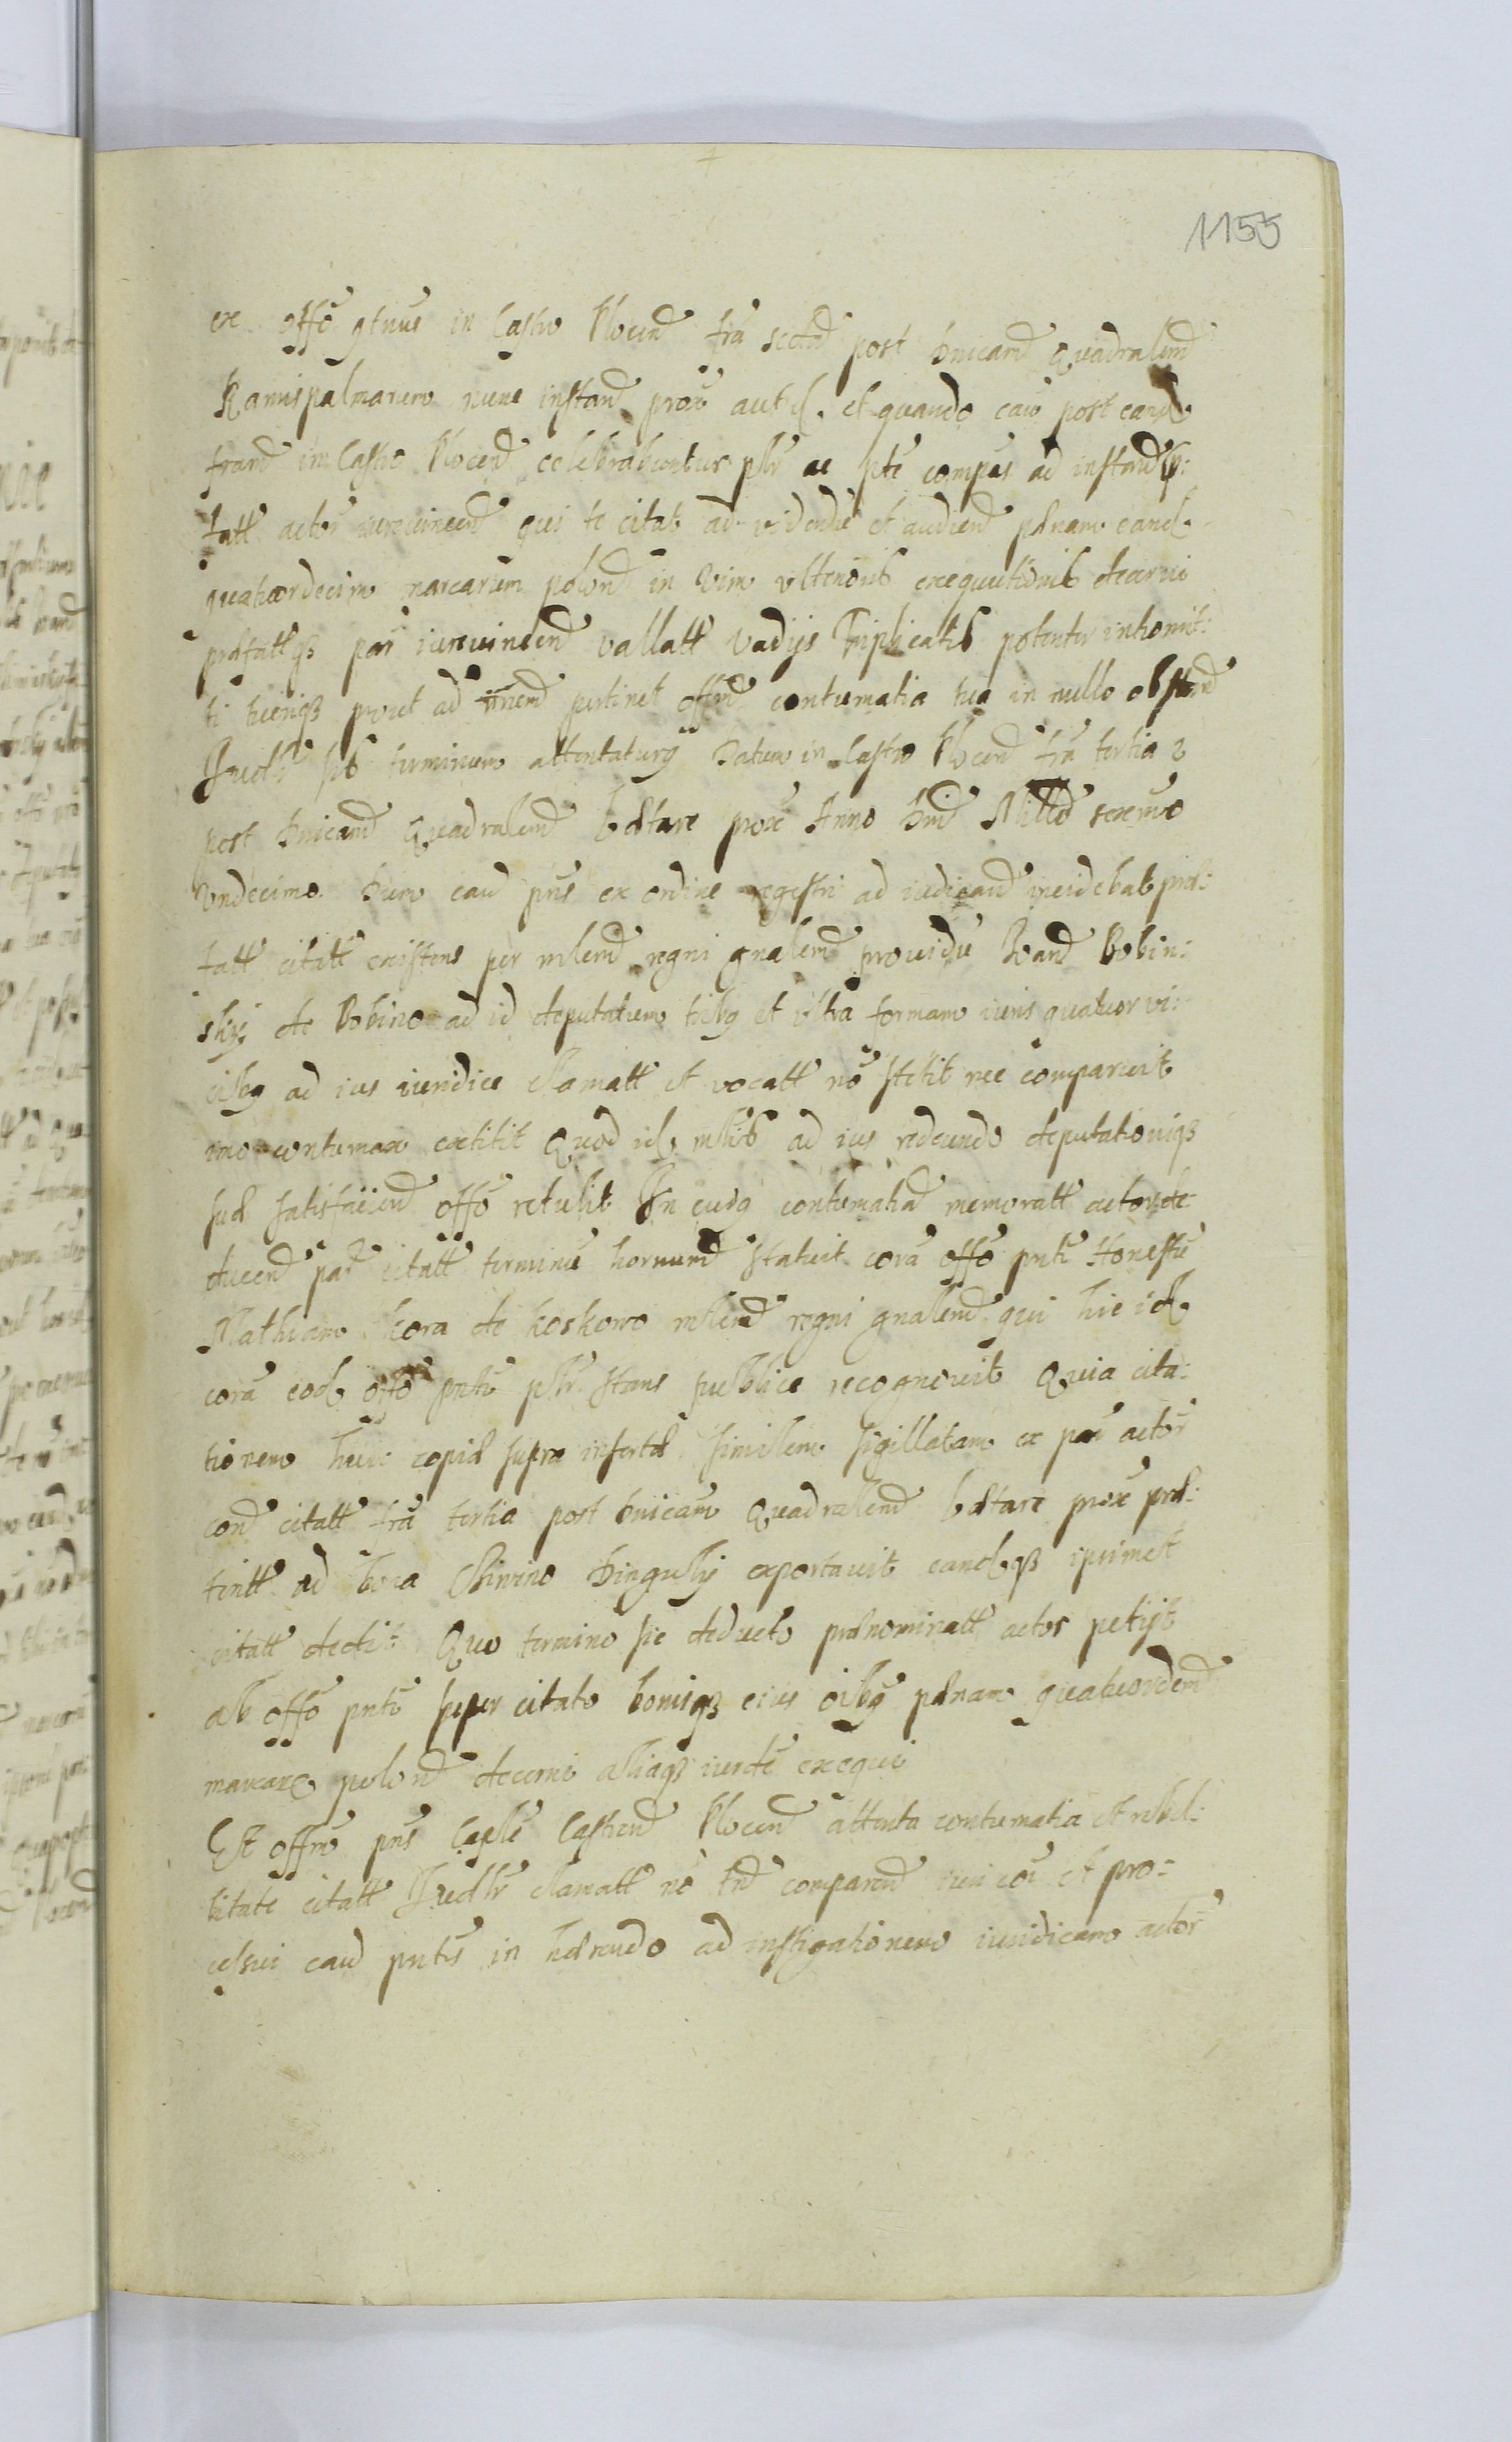 1155
ex offo gtnus in Castro Plocen fra secda post Dnicam Quadralem
Ramispalmarum nunc instan prox aut cl. et quando cau post eand
fran in Castro Plocen celebrabuntur plr ac pte compas ad instan
tatt actor iurevincen qui te citat ad videndu et audien pænam eand
quatuordecim marcarum polon in vim ulterioris exequutionis decerni
præfattqз par iurevincen vallatt vadijs Triplicatis potenter intromit:
ti tueriqз prout ad pertinet offm contumatia tua in nullo obstan
Judlr hb terminum attentaturq Datum in Castro Plocen fra tertia
post Dnicam Quadralem Lætare prox Anno Dni Millo sexmo
Undecimo Dum cau pns ex ordine regestri ad iudican incidebat præ:
tatt citatt existens per mlem regni gnalem providu Joan Bobin:
skij de Bobino ad id deputatum tribq et ultra formam iuris quatuor vi:
cibq ad ius iuridice clamatt et vocatt no stetit nec comparuit
imo contumax extitit Quod id mlis ad ius redeundo deputationiqз
suæ satisfacien offo retulit In cuiq contumatia memoratt actor de
ducen par citatt terminu hornum statuit cora offo pnti Honestu
Mathiam Kora de Koskowo mlem regni gnalem qui hic id
cora eod offo pnti plr stans publice recognovit Quia cita:
tionem huic copiæ supra insertæ similem sigillatam ex par actor
con citatt fra tertia post Dnicam Quadralem Lætare prox præ:
titt ad bona Chinino Dingulij exportavit eandqз ipsimet
citatt dedit Quo termino sic deducto prænominatt actor petijt
ab offo pnti super citato bonisqз eius oibq pænam quatuordem
marcar polon decerni aliaqз iurde exequi
Et offm pns Caple Castren Plocen attenta contumatia et rebel:
litate citatt Judlr clamatt no tn comparen iuri coi et pro:
cessui cau pntis in hærendo ad instigationem iuridicam actor